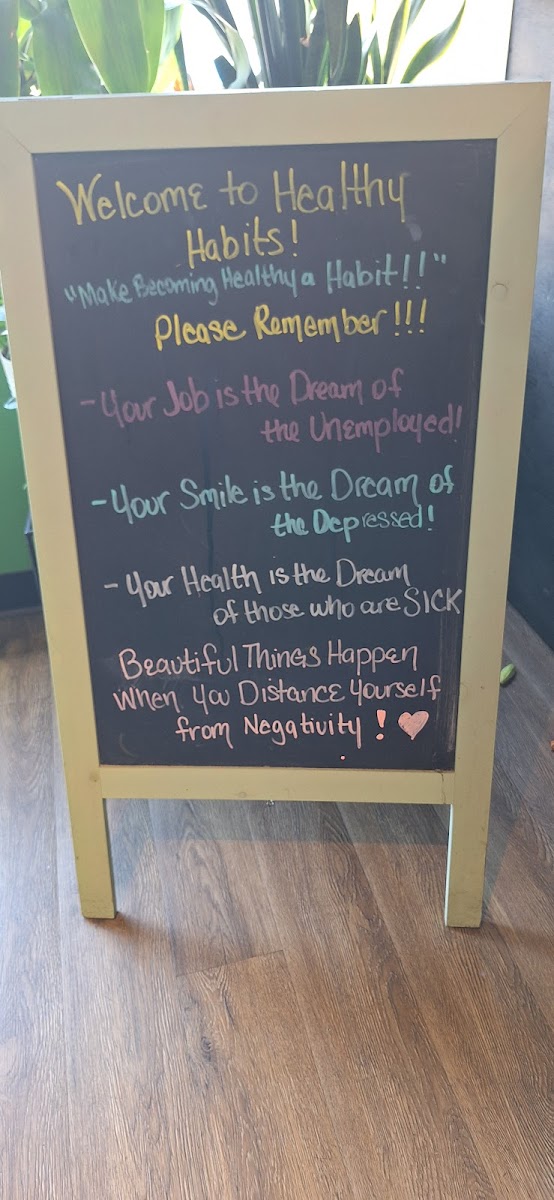 Welcome to Healthy
Habits!
"Make Becoming Healthy a Habit!!"
Please Remember!!!
- Your Job is the Dream of
the Unemployed!
- Your Smile is the Dream of
the Depressed!
- Your Health is the Dream
of those who are SICK
Beautiful Things Happen
When You Distance Yourself
from Negativity! ♥